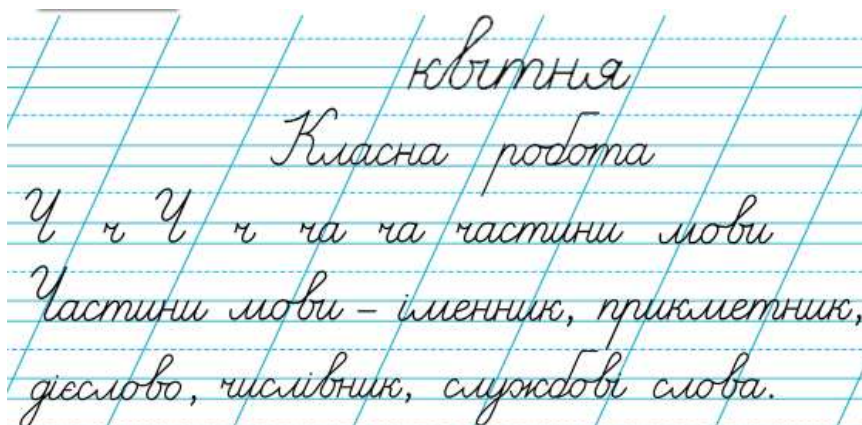 квітня
Класна робота
Ч ч Ч ч ча ча частини мови
Частини мови – іменник, прикметник,
дієслово, числівник, службові слова.